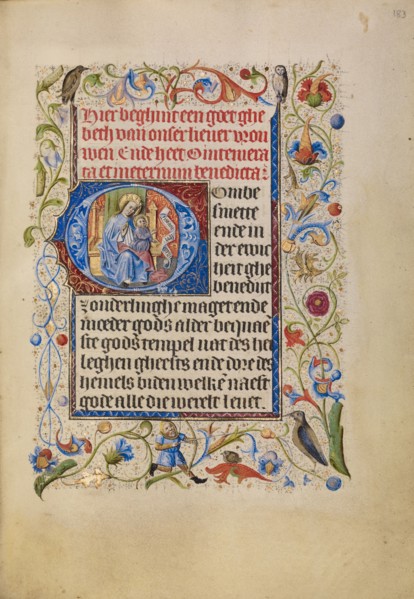 183
Hier beghint een goet ghe
beth van onser liever vrou
wen Ende heet O intemera
ta et in eternum benedicta
O onbe
smette
ende in
der ewic
heit ghe
benedict
zonderlinghe maget ende
moeder gods alder bequae
ste gods tempel nat des hei
leghen gheests ende dore des
hemels biden welke naest
gode alle die werelt levet.